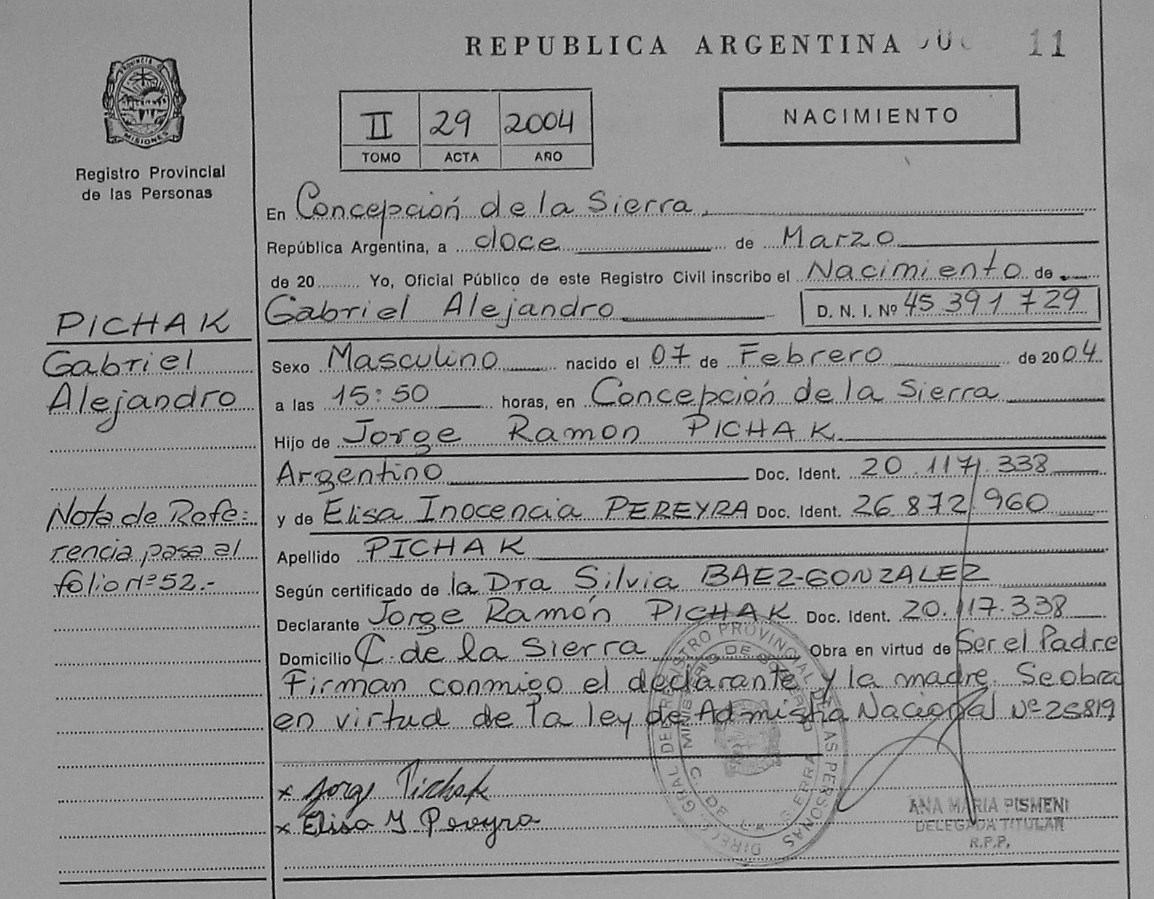 REPUBLICA ARGENTINA 11
PROVINCIA DE MISIONES
Registro Provincial
de las Personas
II 29 2004
TOMO ACTA AÑO
NACIMIENTO
En Concepción de la Sierra.
República Argentina, a doce de Marzo
de 20......... Yo, Oficial Público de este Registro Civil inscribo el Nacimiento de
Gabriel Alejandro D. N. I. Nº 45 391 729
PICHAK
Gabriel
Alejandro
Sexo Masculino nacido el 07 de Febrero de 2004
a las 15:50 horas, en Concepción de la Sierra
Hijo de Jorge Ramon PICHAK
Argentino Doc. Ident. 20.117.338
y de Elisa Inocencia PEREYRA Doc. Ident. 26 872 960
Nota de Refe=
rencia pasa al
folio nº 52.-
Apellido PICHAK
Según certificado de la Dra Silvia BAEZ-GONZALEZ
Declarante Jorge Ramón PICHAK Doc. Ident. 20.117.338
Domicilio C. de la Sierra Obra en virtud de Ser el Padre
Firman conmigo el declarante y la madre. Se obra
en virtud de la ley de Admistia Nacional Nº 25819
x Jorge Pichak
x Elisa Y Pereyra
DIREC. GRAL DE REGISTRO PROVINCIAL DE LAS PERSONAS
MINISTERIO DE GOBIERNO
C. DE LA SIERRA
ANA MARIA PISMENI
DELEGADA TITULAR
R.P.P.